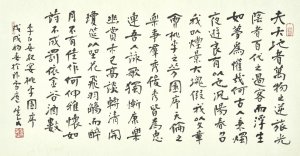 夫天地者萬物之逆旅光
陰者百代之過客而浮生
如夢為歡幾何古人秉燭
夜遊良有以也況陽春召
我以煙景大塊假我以文章
會桃李之芳園序天倫之
樂事群季俊秀皆為惠
連吾人詠歌獨慚康樂
幽賞未已高談轉清開
瓊筵以坐花飛羽觴而醉
月不有佳作何伸雅懷如
詩不成罰依金谷酒數
李白春夜宴桃李園序